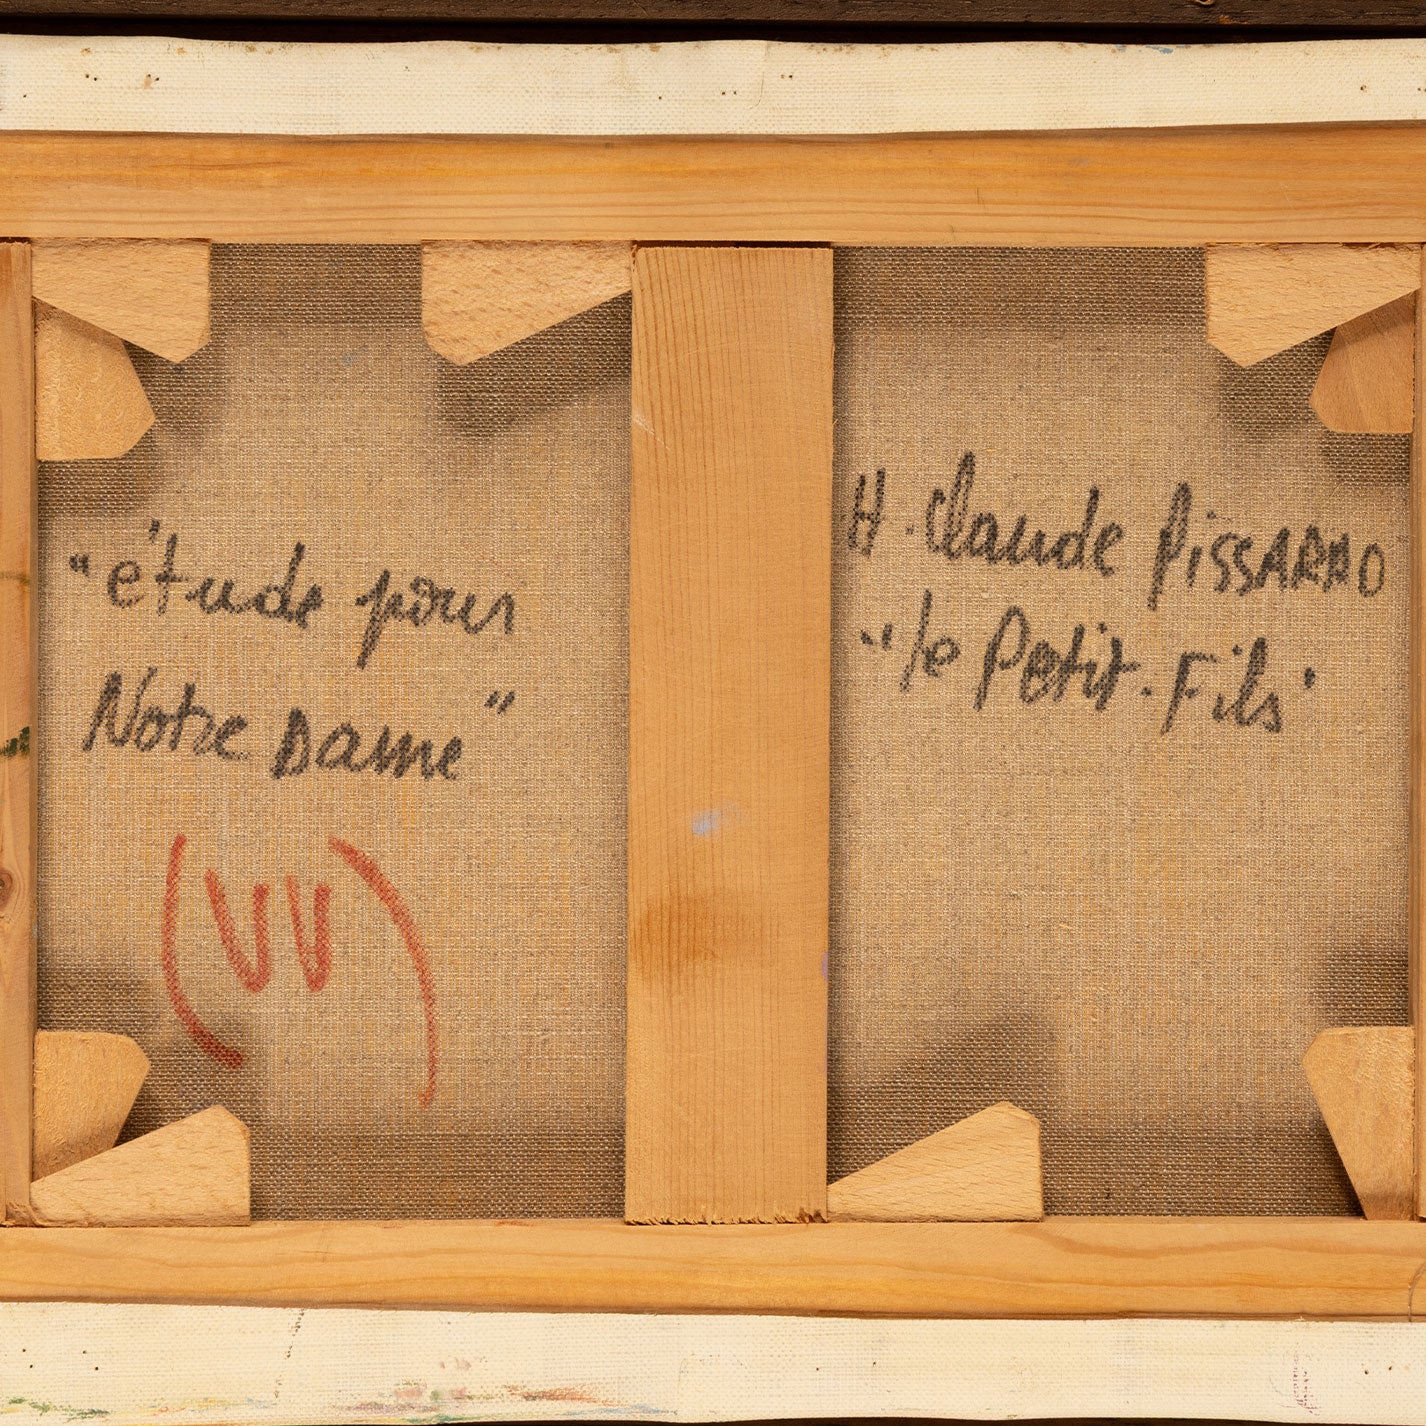 "étude pour
Notre Dame"
(VV)
H. Claude PISSARRO
"le Petit-Fils"